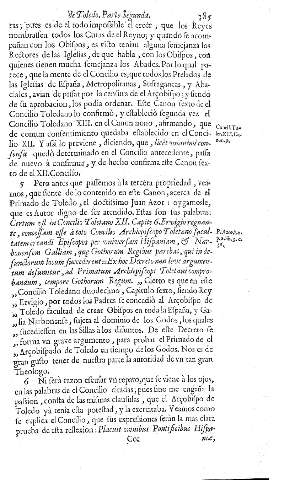 de Toledo. Parte Segunda. 385
ras, pues es de el todo impossible el creer, que los Reyes
nombrassen todos los Curas del Reyno; y quando se acom-
pañan con los Obispos, es visto tengan alguna semejanza los
Rectores de las Iglesias, de que habla, con los Obispos, con
quienes tienen mucha semejanza los Abades. Por lo qual pa-
rece, que la mente de el Concilio es, que todos los Prelados de
las Iglesias de España, Metropolitanas, Sufraganeas, y Aba-
ciales, avian de passar por la censura de el Arçobispo; y siendo
de su aprobacion, los podia ordenar. Este Canon sexto de el
Concilio Toledano se confirmó, y estableció segunda vez el
Concilio Toledano XIII. en el Canon nono, afirmando, que
de comun consentimiento quedaba establecido en el Conci-
lio XII. Y assi lo previene, diciendo, que,
quedò determinado en el Concilio antecedente, passa
de nuevo à confirmar, y de hecho confirma este Canon sex-
to de el XII. Concilio.
5 Pero antes que passemos à la tercera propriedad, vea-
mos, que siente de lo contenido en este Canon, acerca de el
Primado de Toledo, el doctissimo Juan Azor; oygamosle,
que es Autor digno de ser atendido. Estas son sus palabras:
Certum est ex Concilio Toletano XII. Capite 6. Ervigio regnan-
te, concessam esse à toto Concilio Archiepiscopo Toletano facul-
tatem creandi Episcopos per universam Hispaniam, & Nar-
bonensem Galliam, quæ Gothorum Regibus parebat, qui in de-
functorum locum succederent. Ex hoc Decreto non leve argumen-
tum desumitur, ad Primatum Archiepiscopi Toletani compro-
bandum, tempore Gothorum Regum. „ Cierto es que en el
„ Concilio Toledano duodecimo, Capitulo sexto, siendo Rey
„ Ervigio, por todos los Padres se concedió al Arçobispo de
„ Toledo facultad de crear Obispos en toda la España, y Ga-
„ lia Narbonense, sujeta al dominio de los Godos, los quales
„ sucediessen en las Sillas à los difuntos. De este Decreto se
„ forma un grave argumento, para probar el Primado de el
„ Arçobispado de Toledo en tiempo de los Godos. Nos es de
gran gusto tener de nuestra parte la autoridad de un tan gran
Theologo.
6 Ni serà razon escusar un reparo, que se viene à los ojos,
en las palabras de el Concilio dichas, pues sino me engaña la
passion, consta de las mismas clausulas, que el Arçobispo de
Toledo yà tenia esta potestad, y la exercitaba. Veamos como
se explica el Concilio, que sus expressiones seràn la mas clara
prueba de esta reflexion: Placuit omnibus Pontificibus Hispa-
Ccc niæ,